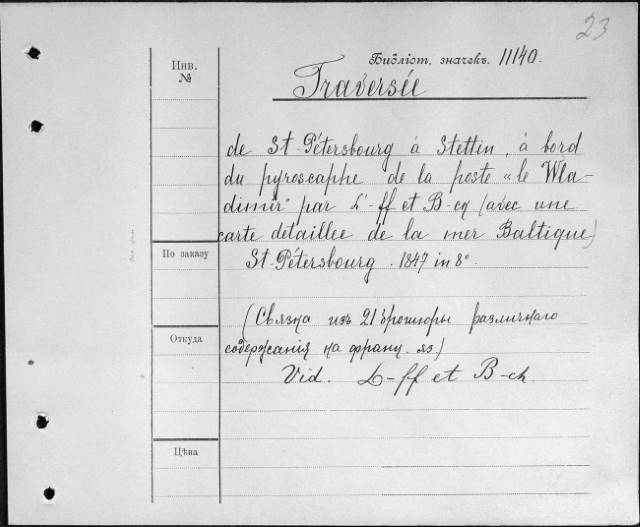 23
Библіот. значекъ. 11140.
Инв.
№
Traversée
de St-Pétersbourg à Stettin, à bord
du pyroscaphe de la poste «le Wla-
dimir" par L-ff et B-ch (avec une
carte detaillee de la mer Baltique)
По заказу
St-Pétersbourg. 1847 in 8°
(Связка изъ 21 брошюры различнаго
Откуда
содержанія на франц. яз.)
Vid. L-ff et B-ch.
Цѣна